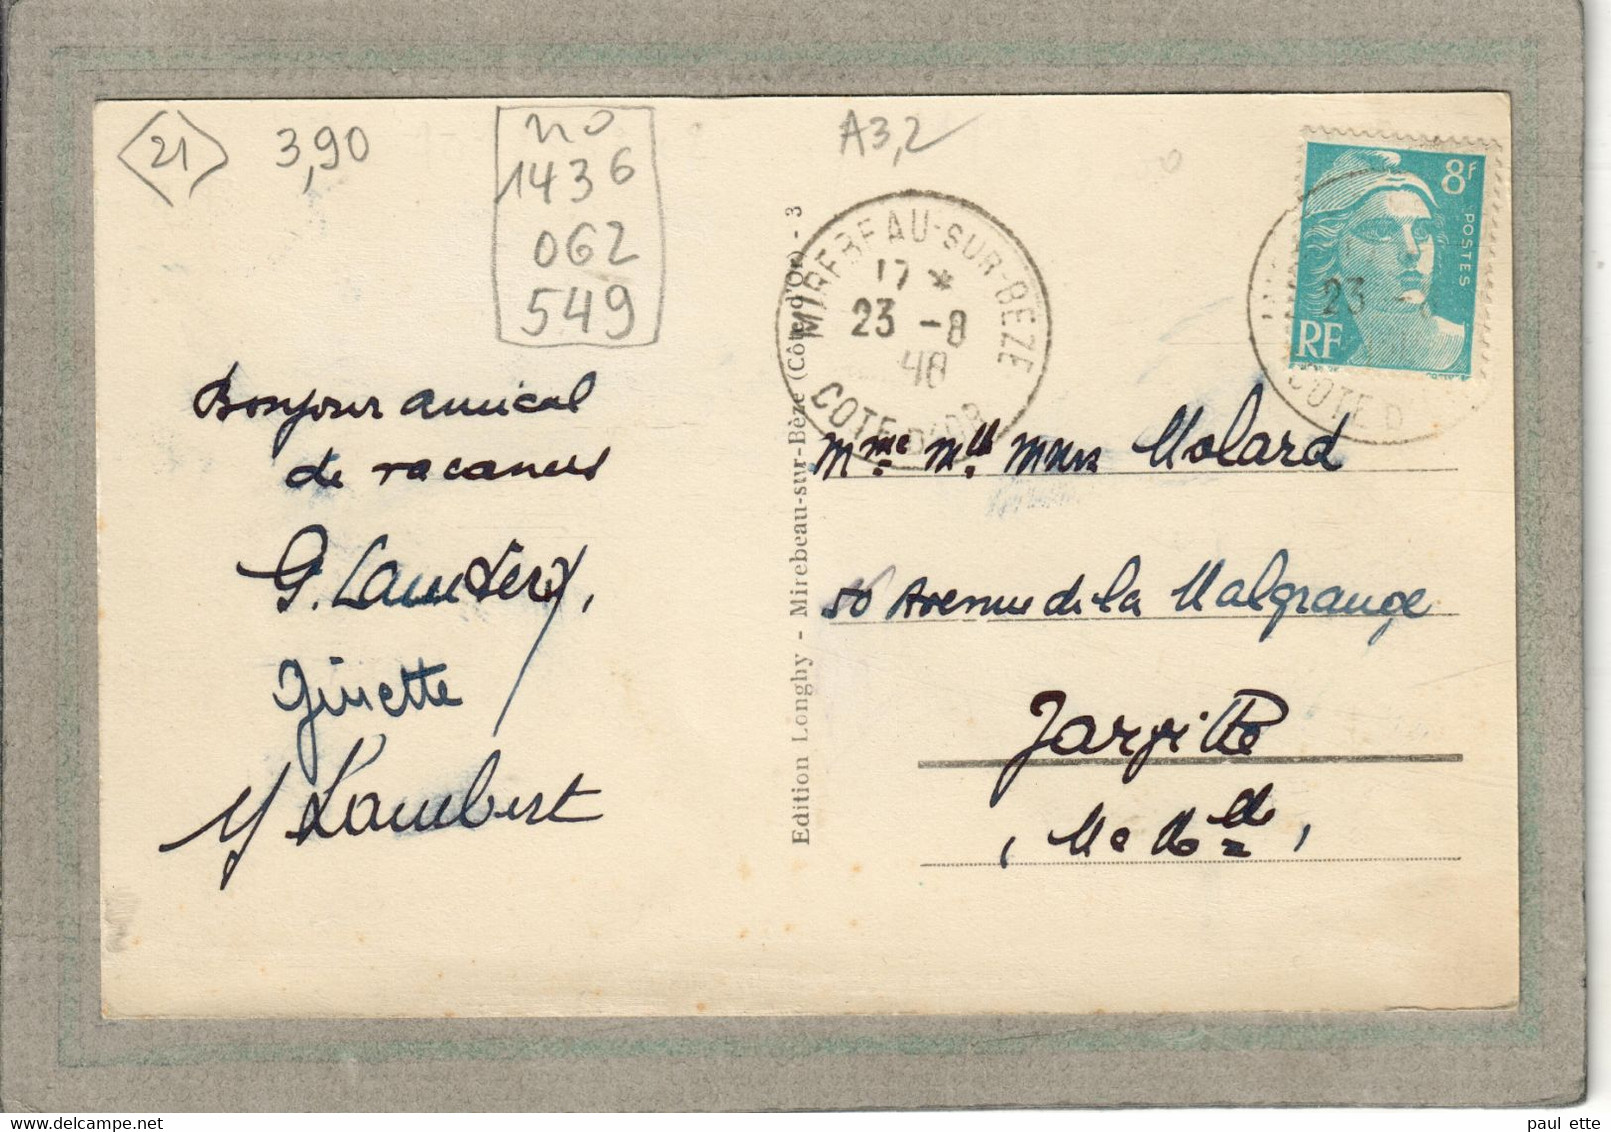 21
3,90
no
1436
062
549
A3,2
Bonjour amical
de vacances
G. Lambert,
Ginette
Y Lambert
Edition Longhy - Mirebeau-sur-Bèze (Côte-d'Or) - 3
MIREBEAU-SUR-BÈZE
17 *
23 -8
48
COTE D'OR
8F
POSTES
RF
23 -
COTE D
Mme Mlle Molard
56 Avenue de la Malgrange
Jarville
(M et Mlle)
paul ette